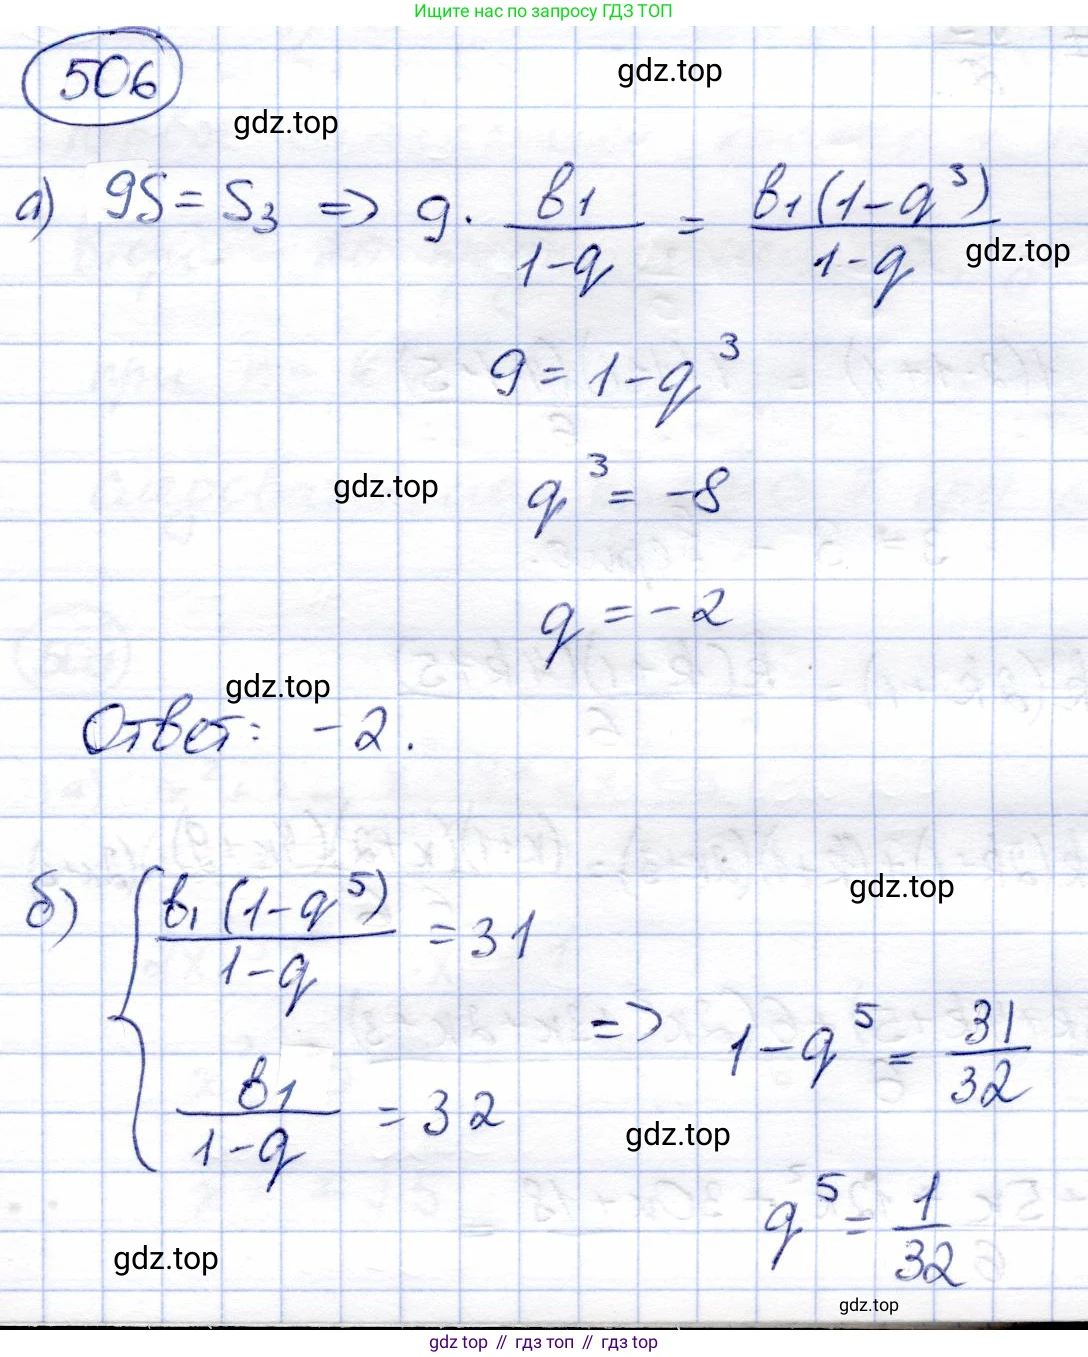 Ищите нас по запросу ГДЗ ТОП
506
gdz.top
gdz.top
а) 9S = S₃ => 9 · b₁/(1-q) = b₁(1-q³)/(1-q)
gdz.top
9 = 1-q³
gdz.top
q³ = -8
q = -2
gdz.top
Ответ: -2.
gdz.top
б) { b₁(1-q⁵)/(1-q) = 31
b₁/(1-q) = 32
=> 1-q⁵ = 31/32
gdz.top
q⁵ = 1/32
gdz.top
gdz.top
gdz top // гдз топ // gdz top